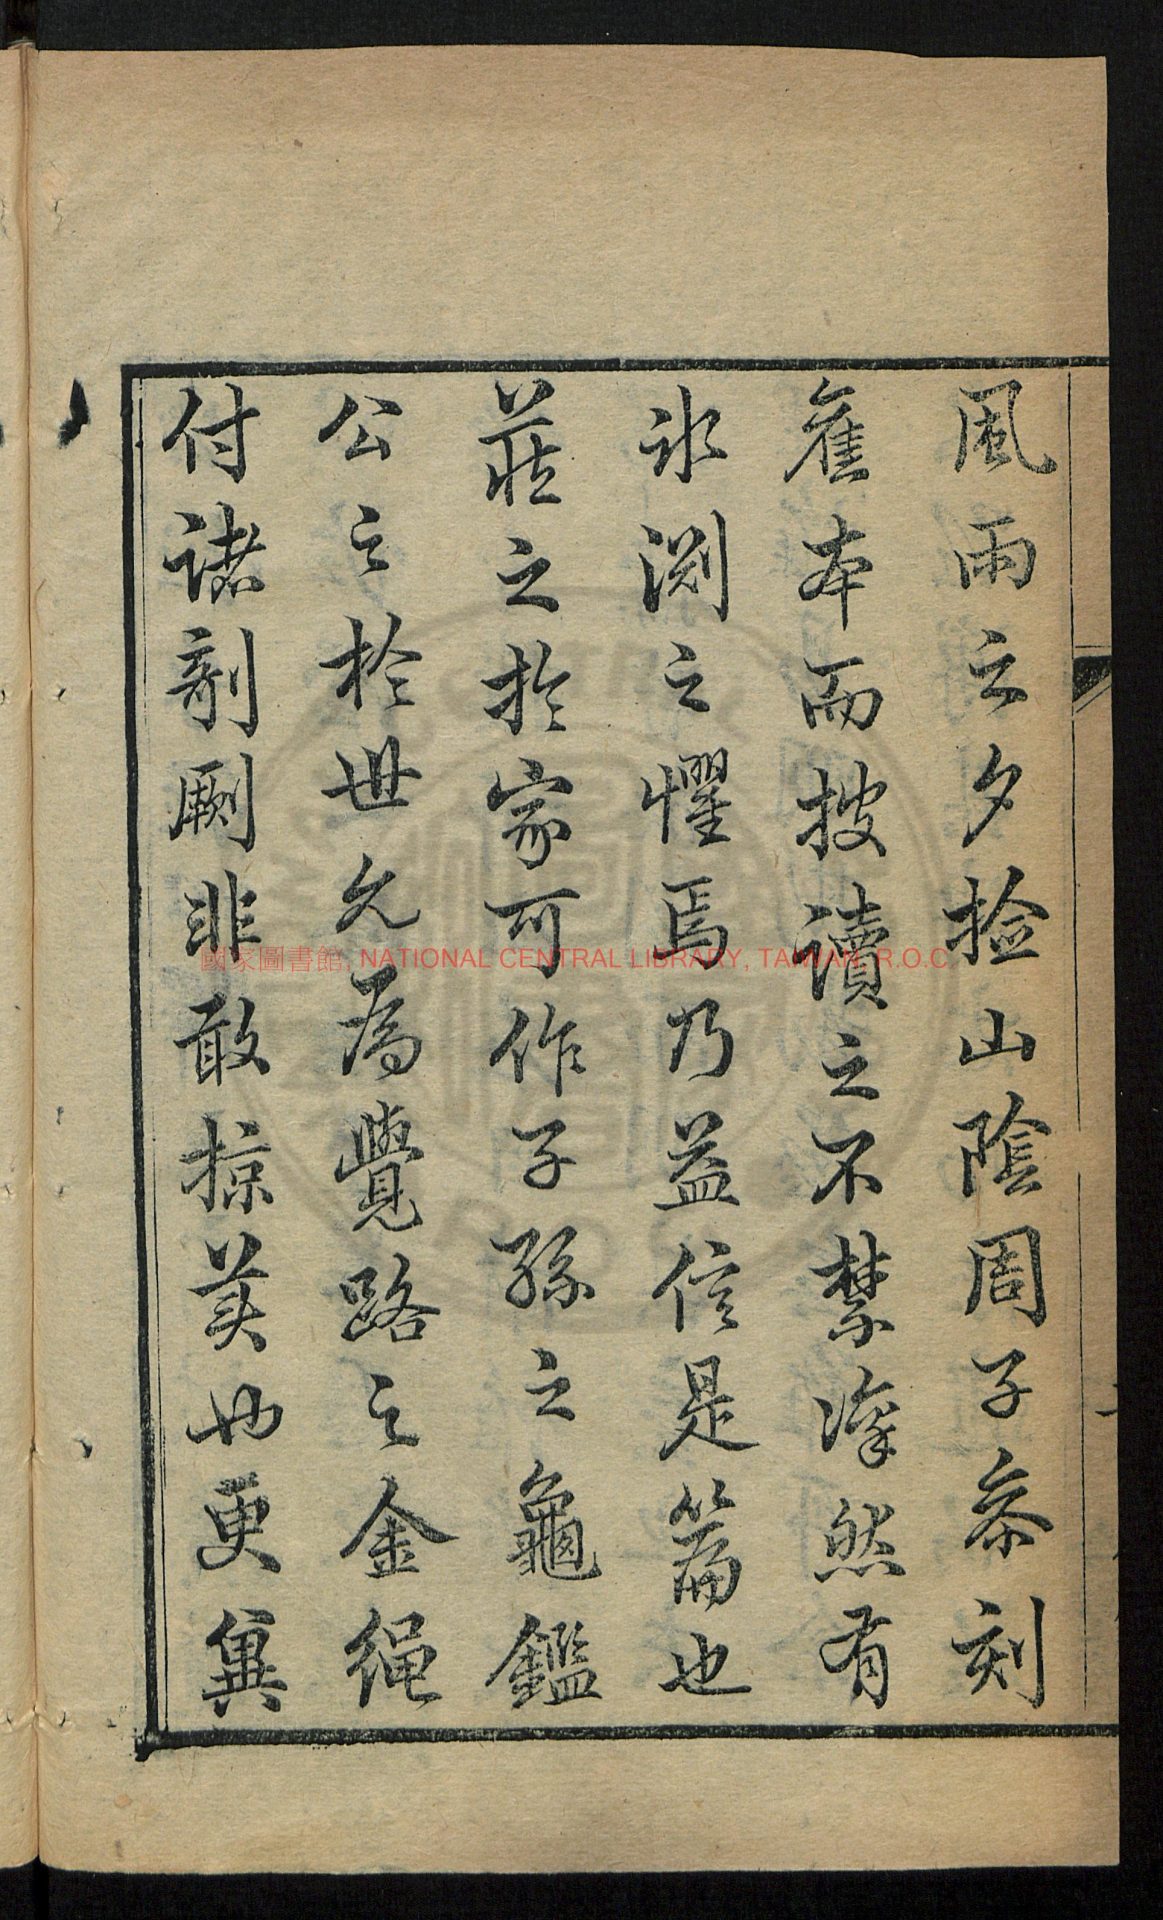 風雨之夕捡山陰周子刻
舊本而披讀之不禁然有
氷渕之懼焉乃益信是篇也
藏之於家可作子孫之龜鑑
公之於世允為覺路之金繩
付諸剞劂非敢掠美也更兾
國家圖書館, NATIONAL CENTRAL LIBRARY, TAIWAN, R.O.C